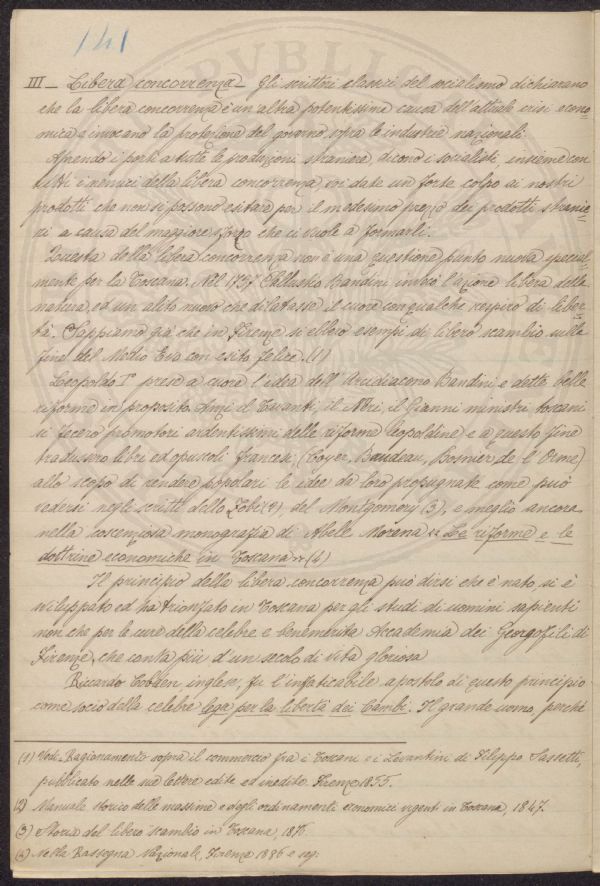 141
III – Libera concorrenza – Gli scrittori classici del socialismo dichiarano
che la libera concorrenza è un'altra potentissima causa dell'attuale crisi econo=
mica e invocano la protezione del governo sopra le industrie nazionali.
Aprendo i porti a tutte le produzioni straniere, dicono i socialisti, insieme con
tutti i nemici della libera concorrenza, voi date un forte colpo ai nostri
prodotti che non si possono esitare per il medesimo prezzo dei prodotti stranie=
ri a causa del maggiore sforzo che ci vuole a formarli.
Questa della libera concorrenza non è una questione punto nuova special=
mente per la Toscana. Nel 1737 Sallustio Bandini invocò l'azione libera della
natura, ed un alito nuovo che dilatasse il cuore con qualche respiro di liber=
tà. Sappiamo già che in Firenze si ebbero esempi di libero scambio sulla
fine del Medio Evo con esito felice. (1)
Leopoldo I° prese a cuore l'idea dell'Arcidiacono Bandini e dettò belle
riforme in proposito. Anzi il Tavanti, il Neri, il Gianni ministri toscani
si fecero promotori ardentissimi delle riforme leopoldine e a questo fine
tradussero libri ed opuscoli francesi, (Coyer, Baudeau, Bosnier de l'Orme)
allo scopo di rendere popolari le idee da loro propugnate come può
vedersi negli scritti dello Zobi (2), del Montgomery (3), e meglio ancora
nella coscenziosa monografia di Abele Morena « Le riforme e le
dottrine economiche in Toscana » (4)
Il principio della libera concorrenza può dirsi che è nato, si è
sviluppato ed ha trionfato in Toscana per gli studi di uomini sapienti
non che per le cure della celebre e benemerita Accademia dei Georgofili di
Firenze, che conta più d'un secolo di vita gloriosa
Riccardo Cobden inglese, fu l'infaticabile apostolo di questo principio
come socio della celebre lega per la libertà dei Cambi. Il grande uomo, perché
(1) Vedi Ragionamento sopra il commercio fra i Toscani e i Levantini di Filippo Sassetti,
pubblicato nelle sue lettere edite ed inedite. Firenze 1855.
(2) Manuale storico delle massime e degli ordinamenti economici vigenti in Toscana, 1847.
(3) Storia del libero scambio in Toscana, 1876.
(4) Nella Rassegna Nazionale, Firenze 1886 e seg: